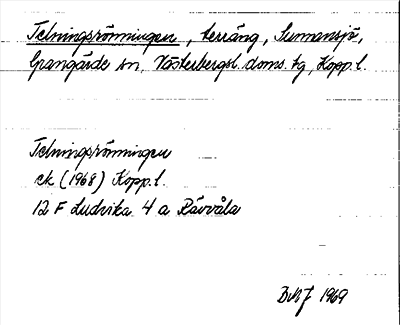 Telningsrönningen, terräng, Sunnansjö,
Grangärde sn, Västerbergsl. doms. tg, Kopp.l.
Telningsrönningen
ek (1968) Kopp.l.
12 F Ludvika 4 a Rävvåla
1969